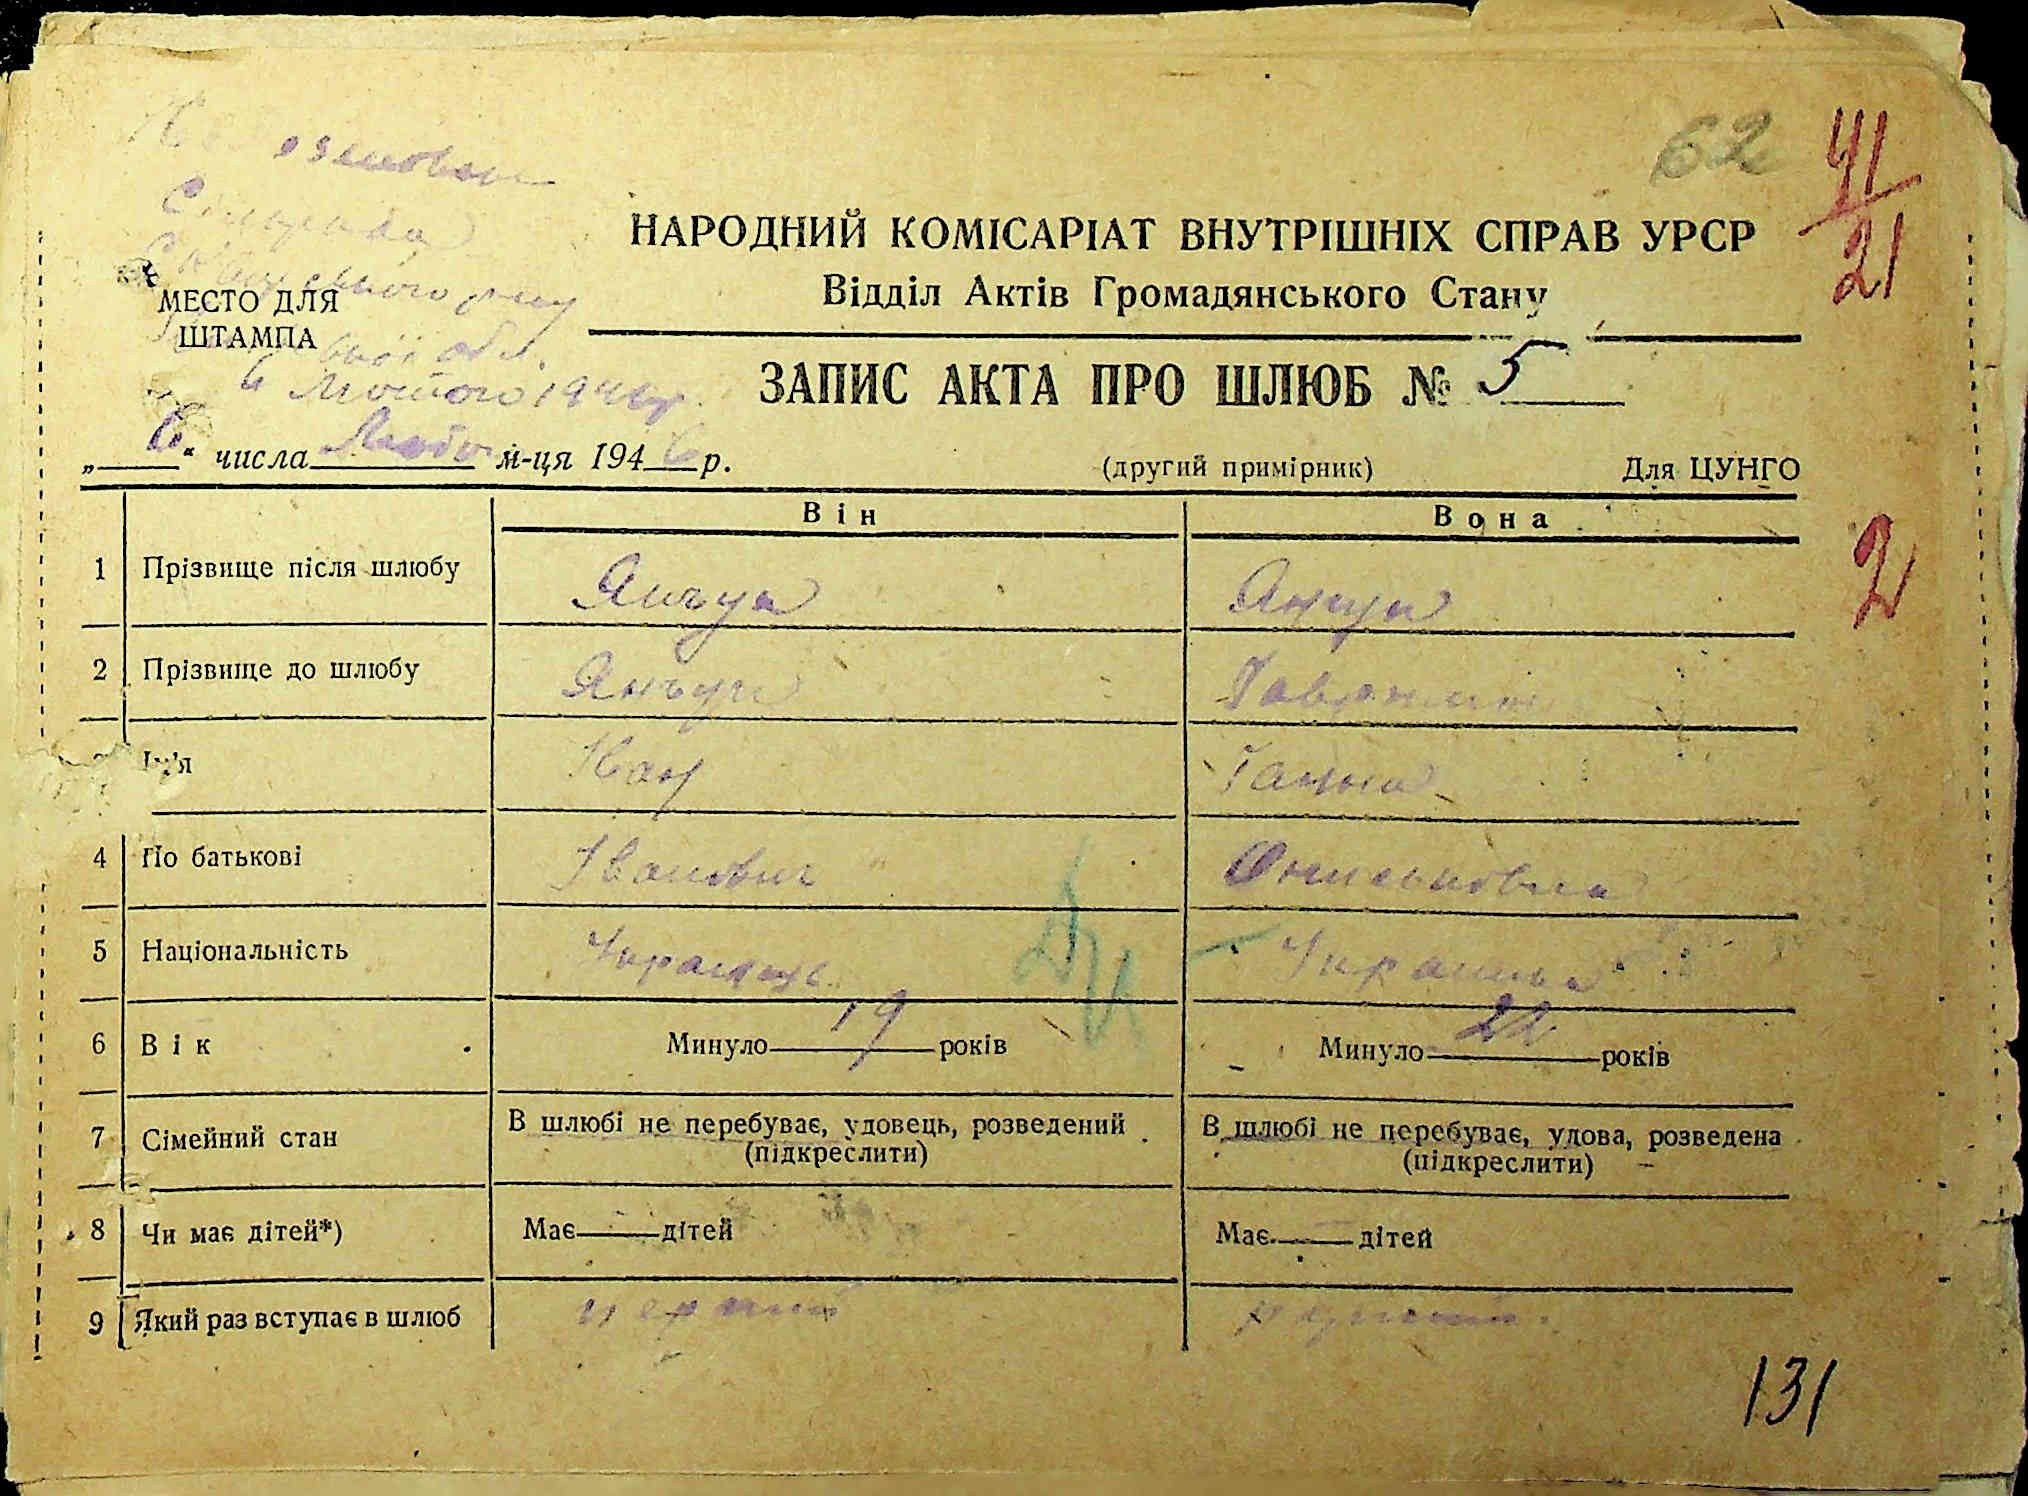 62
41
21
Сільрада
МЕСТО ДЛЯ
ШТАМПА
обл.
6 Лютого 1946 р.
НАРОДНИЙ КОМІСАРІАТ ВНУТРІШНІХ СПРАВ УРСР
Відділ Актів Громадянського Стану
ЗАПИС АКТА ПРО ШЛЮБ № 5
„ 6 “ числа м-ця 194 6 р.
(другий примірник) Для ЦУНГО
Він Вона
2
1 Прізвище після шлюбу
2 Прізвище до шлюбу
Ім'я Іван Ганна
4 По батькові Іванович
5 Національність Українець Українка
6 Вік Минуло 19 років Минуло 22 років
7 Сімейний стан В шлюбі не перебуває, удовець, розведений В шлюбі не перебуває, удова, розведена
(підкреслити) (підкреслити)
8 Чи має дітей*) Має — дітей Має — дітей
9 Який раз вступає в шлюб перший перший.
131